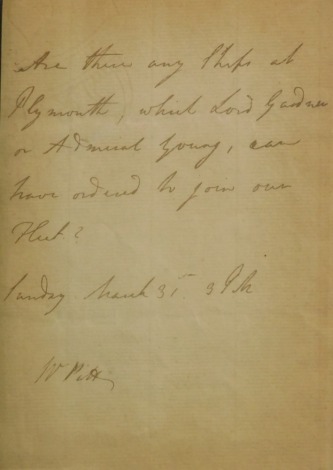 Are there any Ships at
Plymouth, which Lord Gardner
or Admiral Young, can
have ordered to join our
Fleet?
Sunday March 31st 3 P.M.
W Pitt